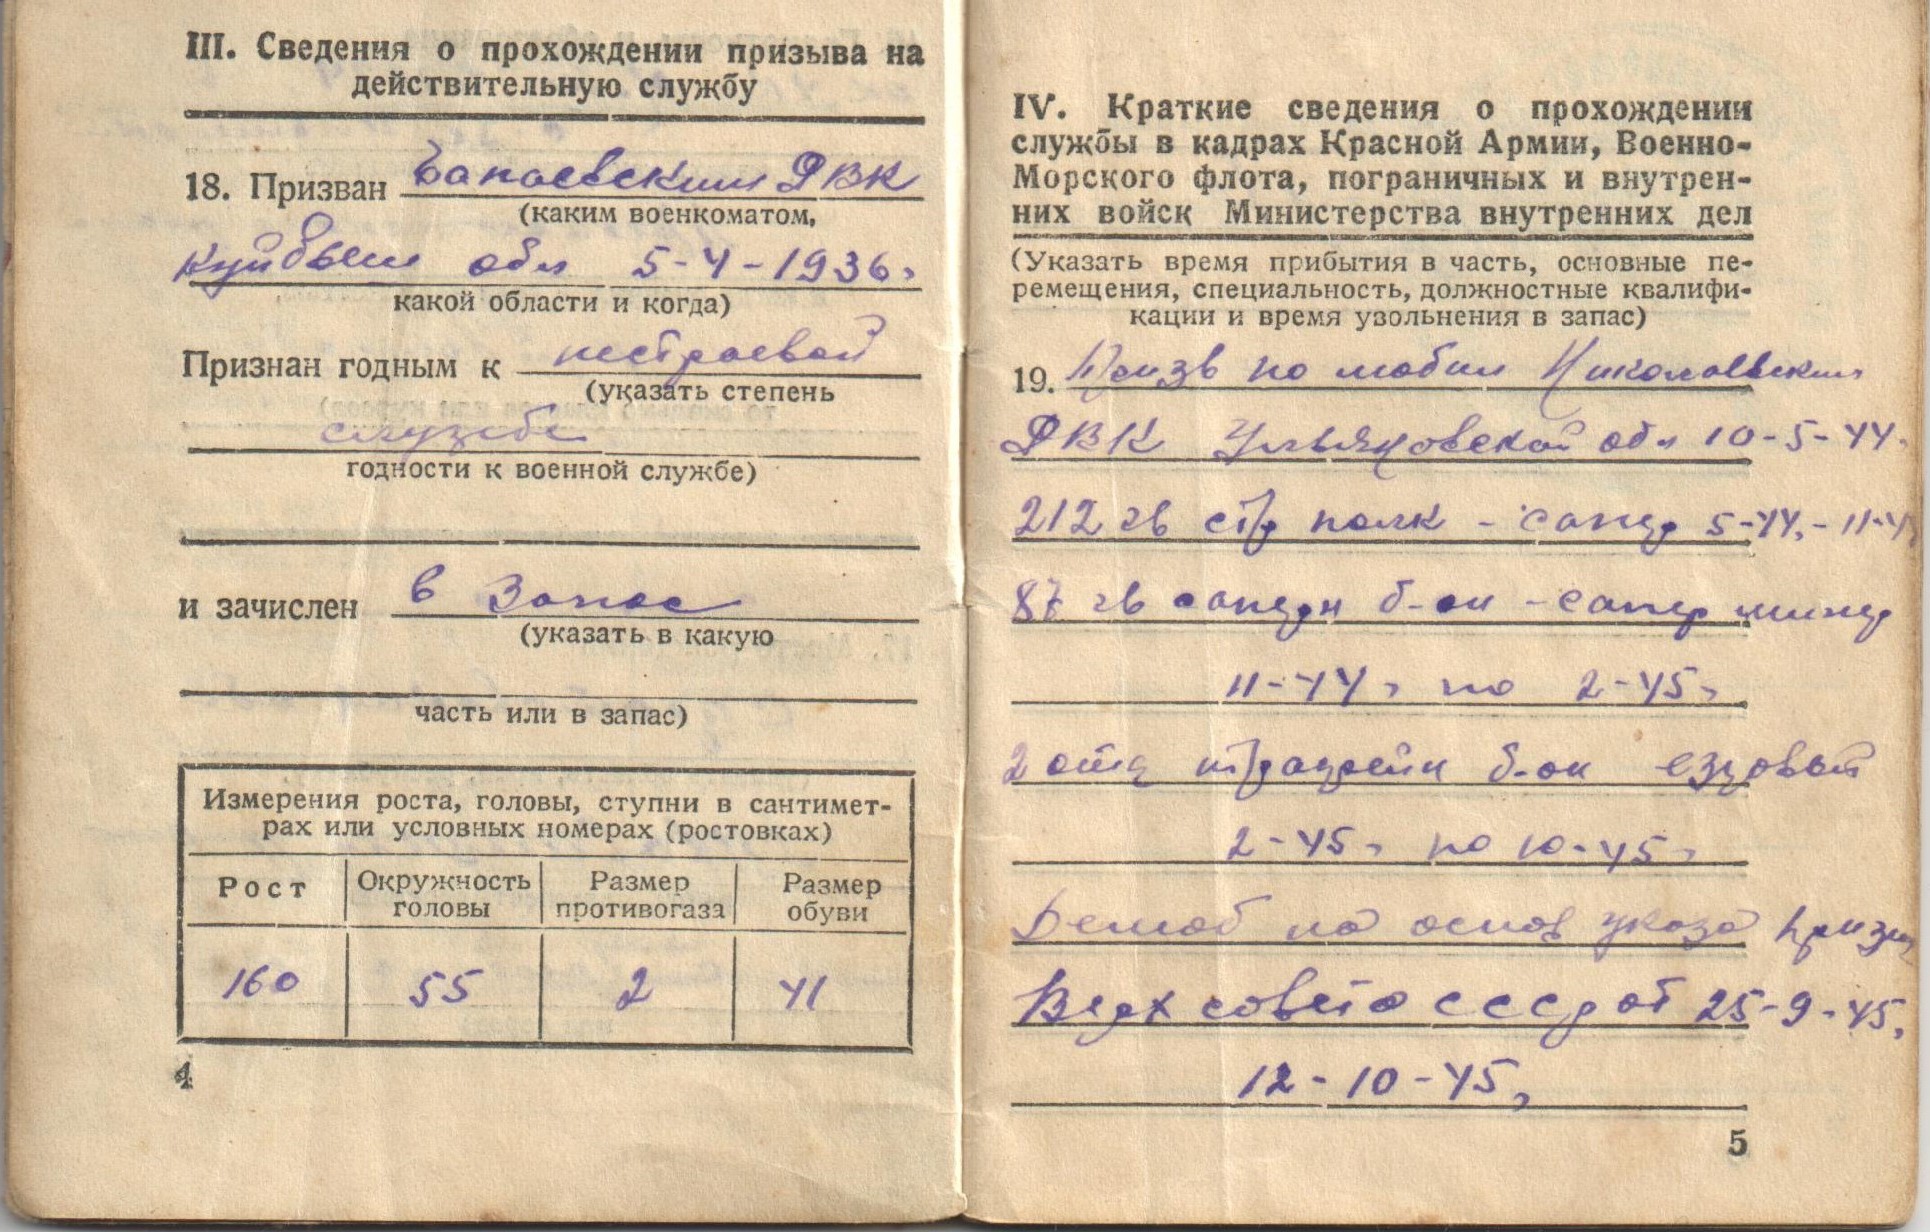 III. Сведения о прохождении призыва на
действительную службу
18. Призван РВК
(каким военкоматом,
Куйбыш обл 5-4-1936г
какой области и когда)
Признан годным к нестроевой
(указать степень
службе
годности к военной службе)
и зачислен в запас
(указать в какую
часть или в запас)
Измерения роста, головы, ступни в сантимет-
рах или условных номерах (ростовках)
Рост Окружность головы Размер противогаза Размер обуви
160 55 2 41
4
IV. Краткие сведения о прохождении
службы в кадрах Красной Армии, Военно-
Морского флота, пограничных и внутрен-
них войск Министерства внутренних дел
(Указать время прибытия в часть, основные пе-
ремещения, специальность, должностные квалифи-
кации и время увольнения в запас)
19. Призв по мобил Николаевским
РВК Ульяновской обл 10-5-44г
212 гв стр полк - сапер 5-44г - 11-44
87 гв саперн б-он - сапер минер
11-44г по 2-45г
2 отд б-он ездовый
2-45г по 10-45г
Демоб на основ указа Презид
Верх совета СССР от 25-9-45г
12-10-45г
5